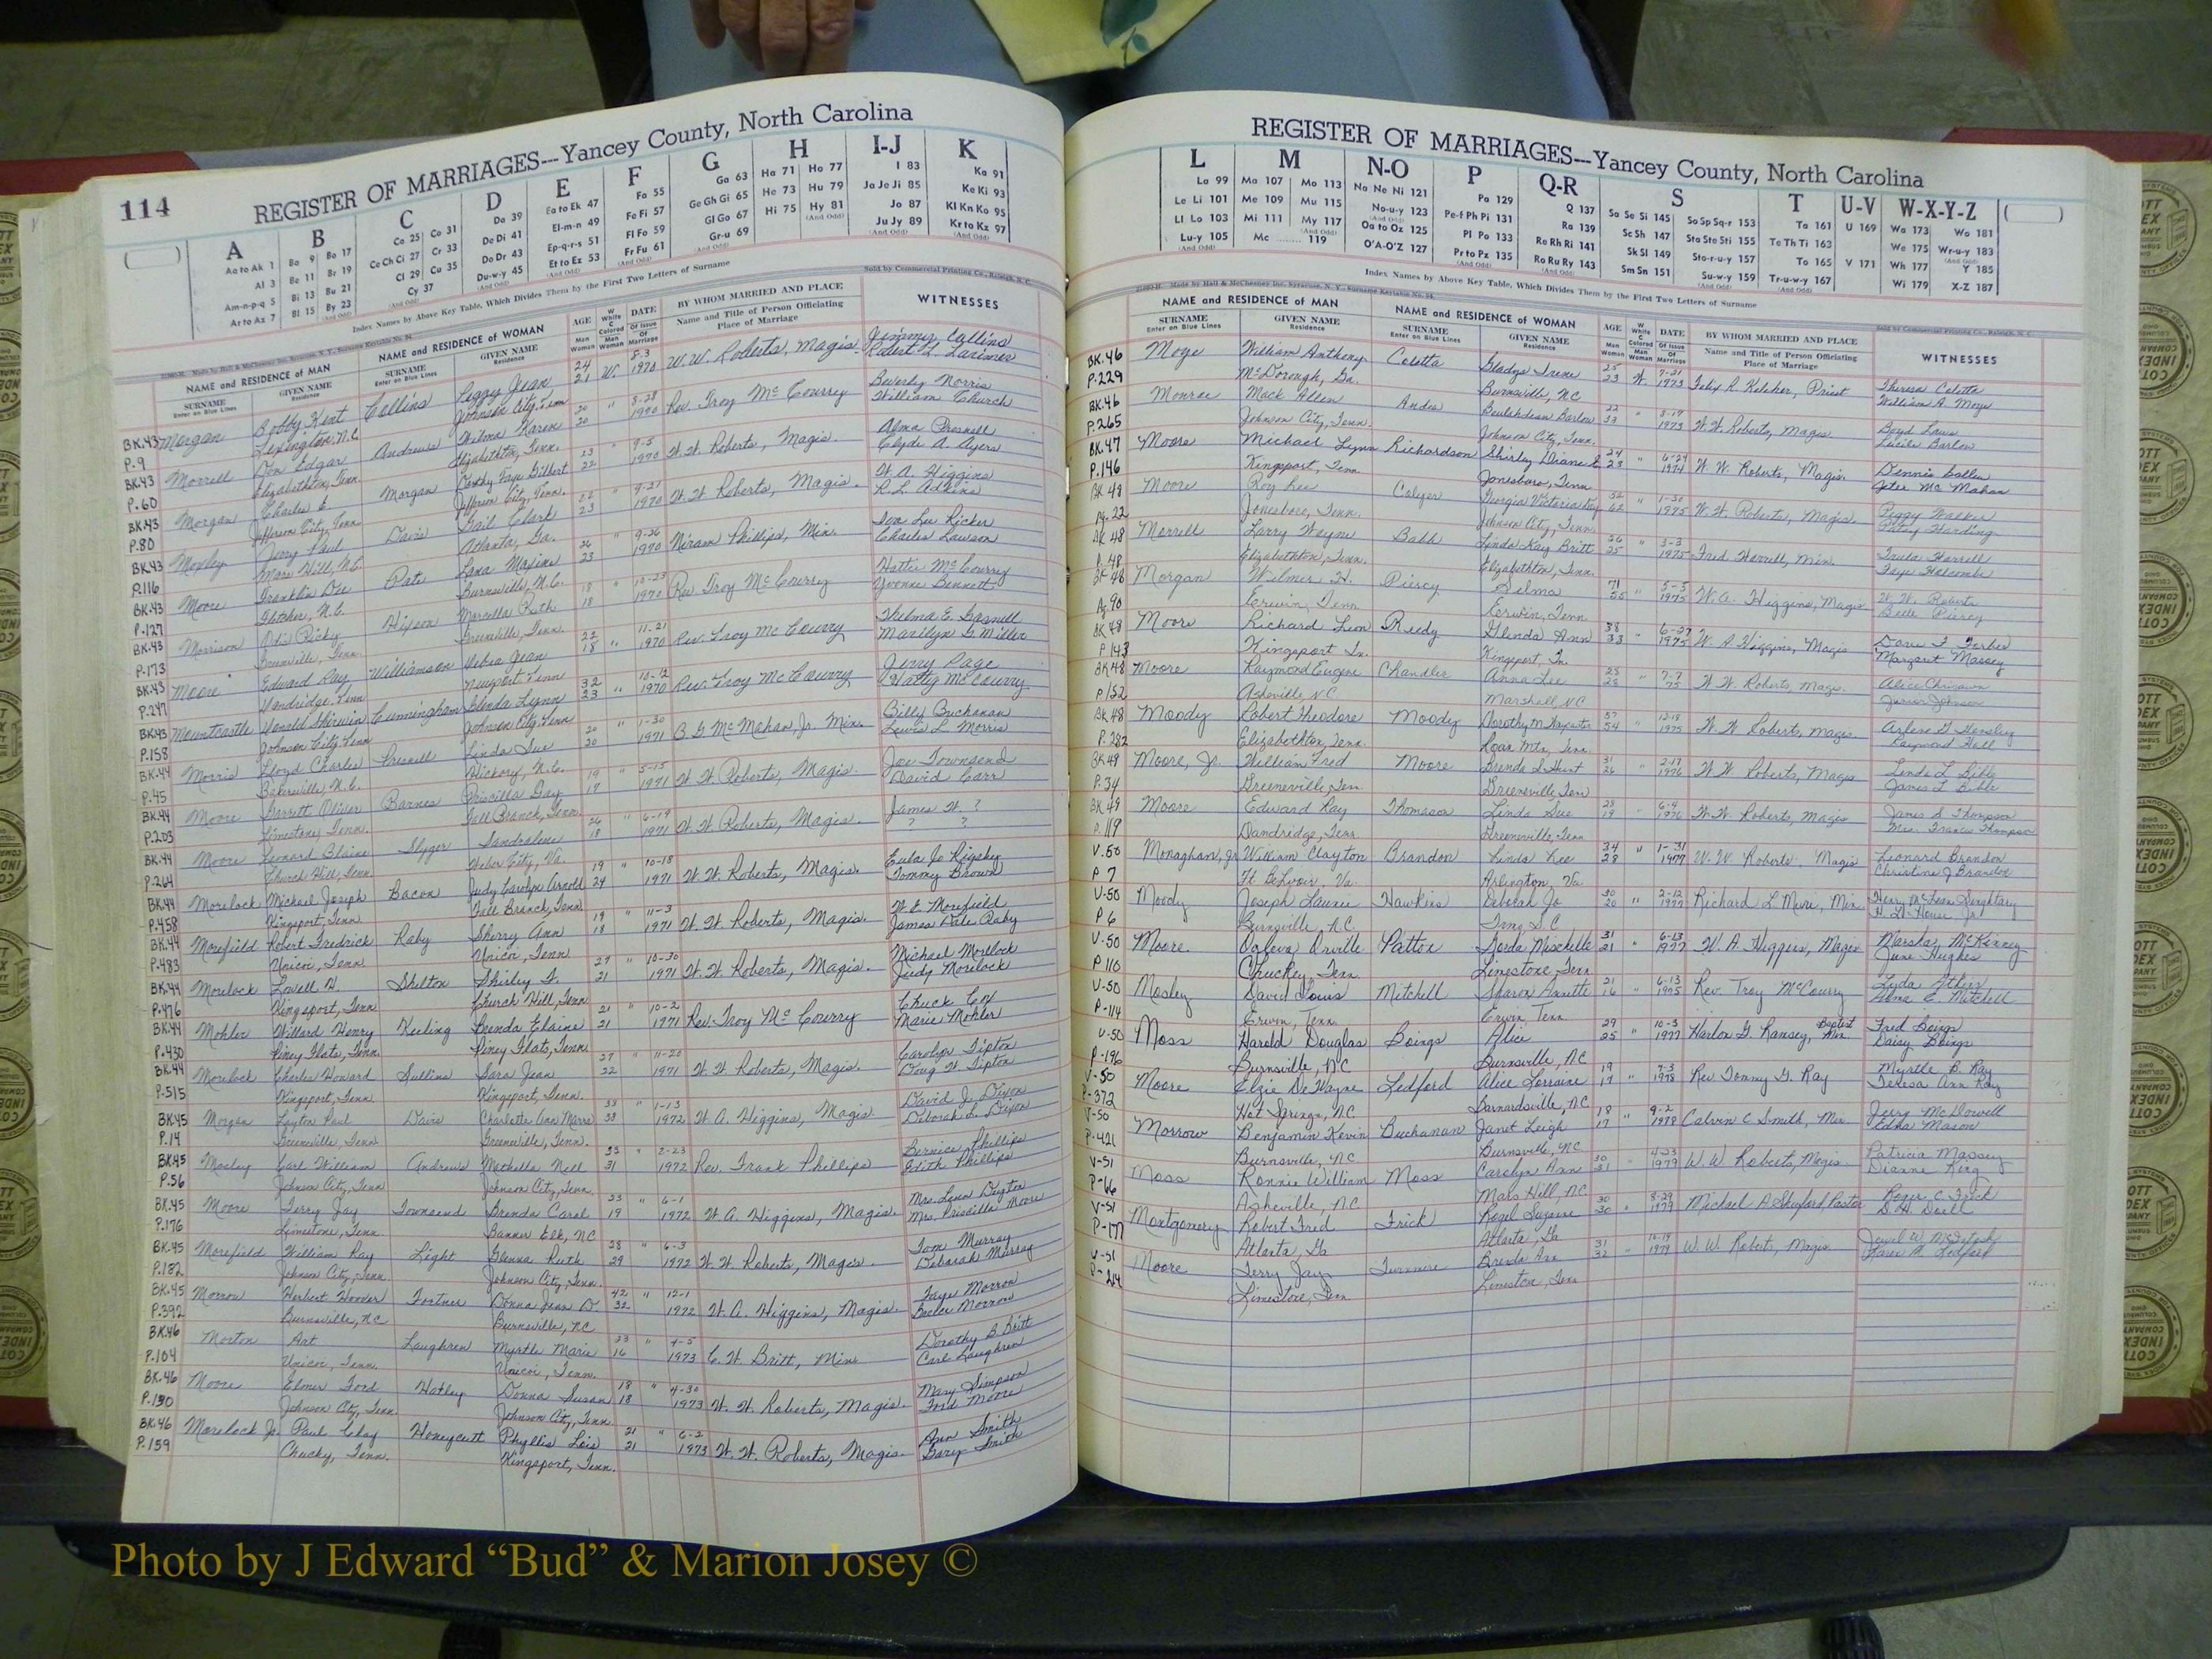 114
REGISTER OF MARRIAGES---Yancey County, North Carolina
A B C D E F G H I-J K
Aa to Ak 1
Al 3
Am-n-p-q 5
Ar to Az 7
Ba 9 Bo 17
Be 11 Br 19
Bi 13 Bu 21
Bl 15 By 23
Ca 25 Co 31
Ce Ch Ci 27 Cr 33
Cl 29 Cu 35
Cy 37
Da 39
De Di 41
Do Dr 43
Du-w-y 45
Ea to Ek 47
El-m-n 49
Ep-q-r-s 51
Et to Ez 53
Fa 55
Fe Fi 57
Fl Fo 59
Fr Fu 61
Ga 63
Ge Gh Gi 65
Gl Go 67
Gr-u 69
Ha 71 Ho 77
He 73 Hu 79
Hi 75 Hy 81
I 83
Ja Je Ji 85
Jo 87
Ju Jy 89
Ka 91
Ke Ki 93
Kl Kn Ko 95
Kr to Kz 97
Index Names by Above Key Table, Which Divides Them by the First Two Letters of Surname
Sold by Commercial Printing Co., Raleigh, N. C.
NAME and RESIDENCE of MAN
SURNAME Enter on Blue Lines GIVEN NAME Residence
NAME and RESIDENCE of WOMAN
SURNAME Enter on Blue Lines GIVEN NAME Residence
AGE Man Woman
W White C Colored Man Woman
DATE Of Issue Of Marriage
BY WHOM MARRIED AND PLACE
Name and Title of Person Officiating
Place of Marriage
WITNESSES
BK.43 Morgan Bobby Kent Collins Peggy Jean 24 W. 8-3 W. W. Roberts, Magis. Jimmy Collins
P.9 Lexington, N.C. Johnson City, Tenn 21 1970 Robert L. Larimer
BK.43 Morrell Don Edgar Andrews Wilma Karen 20 " 8-28 Rev. Troy McCourry Beverly Norris
P.60 Elizabethton, Tenn. Elizabethton, Tenn. 20 1970 William Church
BK.43 Morgan Charles E Morgan Dorothy Faye Gilbert 23 " 9-5 W. W. Roberts, Magis. Alma Presnell
P.80 Jefferson City, Tenn Jefferson City, Tenn. 22 1970 Clyde A. Ayers
BK.43 Moxley Jerry Paul Davis Gail Clark 22 " 9-21 W. W. Roberts, Magis. W. A. Higgins
P.116 Mars Hill, N.C. Atlanta, Ga. 23 1970 R. L. Adkins
BK.43 Moore Franklin Dee Pate Lana Maxine 26 " 9-26 Niram Phillips, Min. Iva Lee Ricker
P.127 Fletcher, N.C. Burnsville, N.C. 23 1970 Charles Lawson
BK.43 Morrison Odis Ricky Hixson Marcella Ruth 18 " 10-23 Rev. Troy McCourry Hattie McCourry
P.173 Greenville, Tenn. Greenville, Tenn. 18 1970 Yvonne Bennett
BK.43 Moore Edward Ray Williamson Debra Jean 22 11-21 Rev. Troy McCourry Thelma E. Gosnell
P.247 Dandridge, Tenn Newport, Tenn 18 " 1970 Marilyn G. Miller
BK.43 Mountcastle Donald Sherwin Cunningham Glenda Lynn 32 10-12 Rev. Troy McCourry Jerry Page
P.158 Johnson City, Tenn Johnson City, Tenn 23 " 1970 Hatty McCourry
BK.44 Morris Lloyd Charles Presnell Linda Sue 20 " 1-30 B. G. McMahan, Jr. Min. Billy Buchanan
P.45 Bakersville, N.C. Hickory, N.C. 20 1971 Lewis L. Morris
BK.44 Moore Garrett Oliver Barnes Priscilla Gay 19 " 5-15 W. W. Roberts, Magis. Joe Townsend
P.203 Limestone, Tenn. Fall Branch, Tenn. 17 1971 David Carr
BK.44 Moore Leonard Blaine Slyger Sandralene 26 " 6-19 W. W. Roberts, Magis. James W. ?
P.264 Church Hill, Tenn Weber City, Va. 18 1971 ? ?
BK.44 Morelock Michael Joseph Bacon Judy Carolyn Arnold 19 " 10-18 W. W. Roberts, Magis. Eula Jo Rigsby
P.458 Kingsport, Tenn Fall Branch, Tenn 24 1971 Tommy Brown
BK.44 Morefield Robert Fredrick Raby Sherry Ann 19 " 11-3 W. W. Roberts, Magis. W. E. Morefield
P.483 Unicoi, Tenn. Unicoi, Tenn 18 1971 James Dale Raby
BK.44 Morelock Lowell H. Shelton Shirley F. 27 " 10-30 W. W. Roberts, Magis. Michael Morelock
P.476 Kingsport, Tenn Church Hill, Tenn 21 1971 Judy Morelock
BK.44 Mohler Willard Henry Keeling Brenda Elaine 21 " 10-2 Rev. Troy McCourry Chuck Cox
P.430 Piney Flats, Tenn. Piney Flats, Tenn. 21 1971 Marie Mohler
BK.44 Morelock Charles Howard Sullins Sara Jean 27 " 11-20 W. W. Roberts, Magis. Carolyn Tipton
P.515 Kingsport, Tenn Kingsport, Tenn. 22 1971 Doug W. Tipton
BK.45 Morgan Layton Paul Davis Charlotte Ann Marie 33 " 1-13 W. A. Higgins, Magis. David J. Dixon
P.14 Greenville, Tenn Greenville, Tenn. 33 1972 Deborah L. Dixon
BK.45 Mosley Carl William Andrews Mathella Nell 33 " 2-23 Rev. Frank Phillips Bernice Phillips
P.56 Johnson City, Tenn Johnson City, Tenn. 31 1972 Edith Phillips
BK.45 Moore Terry Jay Townsend Brenda Carol 23 " 6-1 W. A. Higgins, Magis. Mrs. Lena Deyton
P.176 Limestone, Tenn. Banner Elk, NC 19 1972 Mrs. Priscilla Moore
BK.45 Morefield William Ray Light Glenna Ruth 28 " 6-3 W. W. Roberts, Magis. Tom Murray
P.182 Johnson City, Tenn Johnson City, Tenn. 29 1972 Deborah Murray
BK.45 Morrow Herbert Hoover Fortner Donna Jean D 42 " 12-1 W. A. Higgins, Magis. Faye Morrow
P.392 Burnsville, NC Burnsville, NC 32 1972 Morrow
BK.46 Morton Art Laughren Myrtle Marie 23 " 4-5 C. W. Britt, Min. Dorothy B Britt
P.104 Unicoi, Tenn. Unicoi, Tenn. 16 1973 Carl Laughren
BK.46 Moore Elmer Ford Hatley Donna Susan 18 " 4-30 W. W. Roberts, Magis. Mary Simpson
P.130 Johnson City, Tenn. Johnson City, Tenn 18 1973 Ford Moore
BK.46 Morelock Jr. Paul Clay Honeycutt Phyllis Lois 21 " 6-2 W. W. Roberts, Magis. Ann Smith
P.159 Chucky, Tenn. Kingsport, Tenn. 21 1973 Gary Smith
REGISTER OF MARRIAGES---Yancey County, North Carolina
L M N-O P Q-R S T U-V W-X-Y-Z
La 99
Le Li 101
Ll Lo 103
Lu-y 105
Ma 107 Mo 113
Me 109 Mu 115
Mi 111 My 117
Mc 119
Na Ne Ni 121
No-u-y 123
Oa to Oz 125
O'A-O'Z 127
Pa 129
Pe-f Ph Pi 131
Pl Po 133
Pr to Pz 135
Q 137
Ra 139
Re Rh Ri 141
Ro Ru Ry 143
Sa Se Si 145 So Sp Sq-r 153
Sc Sh 147 Sta Ste Sti 155
Sk Sl 149 Sto-r-u-y 157
Sm Sn 151 Su-w-y 159
Ta 161
Te Th Ti 163
To 165
Tr-u-w-y 167
U 169
V 171
Wa 173 Wo 181
We 175 Wr-u-y 183
Wh 177 Y 185
Wi 179 X-Z 187
Index Names by Above Key Table, Which Divides Them by the First Two Letters of Surname
NAME and RESIDENCE of MAN
SURNAME Enter on Blue Lines GIVEN NAME Residence
NAME and RESIDENCE of WOMAN
SURNAME Enter on Blue Lines GIVEN NAME Residence
AGE Man Woman
W White C Colored Man Woman
DATE Of Issue Of Marriage
BY WHOM MARRIED AND PLACE
Name and Title of Person Officiating
Place of Marriage
WITNESSES
BK.46 Moye William Anthony Celetta Gladys Irene 25 W. 7-21 Felix R. Kelcher, Priest Theresa Celetta
P.229 McDorough, Ga. Burnsville, NC 23 1973 William A. Moye
BK.46 Monroe Mack Allen Andes Beulahdean Barlow 22 " 8-17 W. W. Roberts, Magis Boyd Laws
P.265 Johnson City, Tenn. Johnson City, Tenn. 33 1973 Lucille Barlow
BK.47 Moore Michael Lynn Richardson Shirley Diane 24 " 6-24 W. W. Roberts, Magis. Dennis
P.146 Kingsport, Tenn Jonesboro, Tenn 23 1974 McMahan
BK 48 Moore Roy Lee Colyer Georgia Victoria 32 " 1-30 W. W. Roberts, Magis. Peggy Walker
Pg. 22 Jonesboro, Tenn. Johnson City, Tenn. 62 1975 Patsy Harding
BK 48 Morrell Larry Wayne Ball Linda Kay Britt 26 " 3-3 Fred Harrell, Min. Trula Harrell
P. 48 Elizabethton, Tenn. Elizabethton, Tenn. 25 1975 Faye Holcombe
BK 48 Morgan Wilmer H. Piercy Selma 71 5-5 W. A. Higgins, Magis W. W. Roberts
Pg. 90 Erwin, Tenn Erwin, Tenn 55 " 1975 Belle Piercy
BK 48 Moore Richard Leon Reedy Glenda Ann 38 " 6-27 W. A. Higgins, Magis Forbes
P 143 Kingsport Tn. Kingsport, Tn. 33 1975 Margaret Massey
BK48 Moore Raymond Eugene Chandler Anna Lee 23 " 7-7 W. W. Roberts, Magis. Alice
P.152 Asheville NC Marshall, NC 23 75 Junior Johnson
BK 48 Moody Robert Theodore Moody Dorothy M. 57 12-18 W. W. Roberts, Magis Arlene G. Hensley
P. 282 Elizabethton, Tenn. Roan Mtn, Tenn. 54 " 1975 Raymond Hall
BK49 Moore, Jr. William Fred Moore Brenda S. Hunt 31 2-17 W. W. Roberts, Magis Linda L Bible
P.34 Greeneville, Ten Greeneville, Ten 26 " 1976 James L Bible
BK.49 Moore Edward Ray Thomason Linda Sue 28 " 6-4 W. W. Roberts, Magis James S Thompson
P. 119 Dandridge, Tenn Greeneville, Tenn 19 1976 Mrs. Francis Thompson
V.50 Monaghan, Jr William Clayton Brandon Linda Lee 34 " 1-31 W. W. Roberts, Magis Leonard Brandon
P 7 Ft. Belvoir, Va. Arlington, Va 28 1977 Christine J Brandon
V-50 Moody Joseph Laurie Hawkins Deborah Jo 30 2-12 Richard L Mure, Min
P 6 Burnsville, N.C. S C 20 " 1977 H. D. House, Jr
V-50 Moore Ogleva Orville Patton Dorda Meschelle 31 6-13 W. A. Higgins, Magis Marsha McKinney
P 110 Chuckey, Tenn. Limestone, Tenn 21 " 1977 June Hughes
V-50 Mosley David Louis Mitchell Sharon Annette 21 6-13 Rev. Troy McCourry Lyda
P-114 Erwin, Tenn. Erwin Tenn. 16 " 1975 E. Mitchell
V-50 Moss Harold Douglas Boings Alice 29 10-3 Harlon G. Ramsey, Baptist Min. Fred Boings
P-196 Burnsville, NC Burnsville, NC 25 " 1977 Daisy Boings
V-50 Moore Elzie DeWayne Ledford Alice Lorraine 19 9-3 Rev Tommy G. Ray Myrtle B. Ray
P-372 Hot Springs, NC Barnardsville, NC 17 " 1978 Teresa Ann Ray
V-50 Morrow Benjamin Kevin Buchanan Janet Leigh 18 9-2 Calvin C Smith, Min. Jerry McDowell
P-421 Burnsville, NC Burnsville, NC 17 " 1978 Edna Mason
V-51 Moss Ronnie William Moss Carolyn Ann 30 4-23 W. W. Roberts, Magis Patricia Massey
P-66 Asheville, NC Mars Hill, NC 31 " 1979 Dianne King
V-51 Montgomery Robert Fred Frick Suzanne 30 8-29 Michael A Shuford Pastor Roger C Frick
P-177 Atlanta, Ga Atlanta, Ga 30 " 1979
V-51 Moore Terry Jay Brenda Ann 31 10-19 W. W. Roberts, Magis
P-214 Limestone, Tenn Limeston, Tenn 32 " 1979 Karen M. Ledford
Photo by J Edward “Bud” & Marion Josey ©